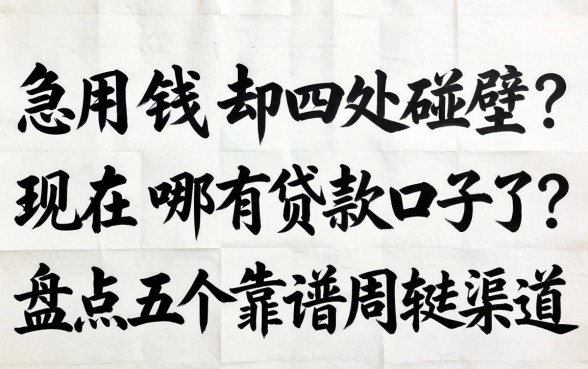 急用钱 却四处碰壁?
现在 哪有贷款口子了?
盘点五个靠谱周转渠道